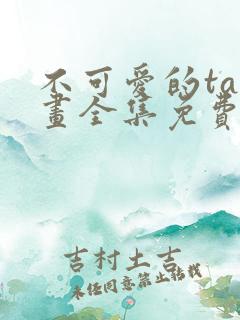 不可愛的ta
畫全集免費
吉村土吉
未任同意禁止转载